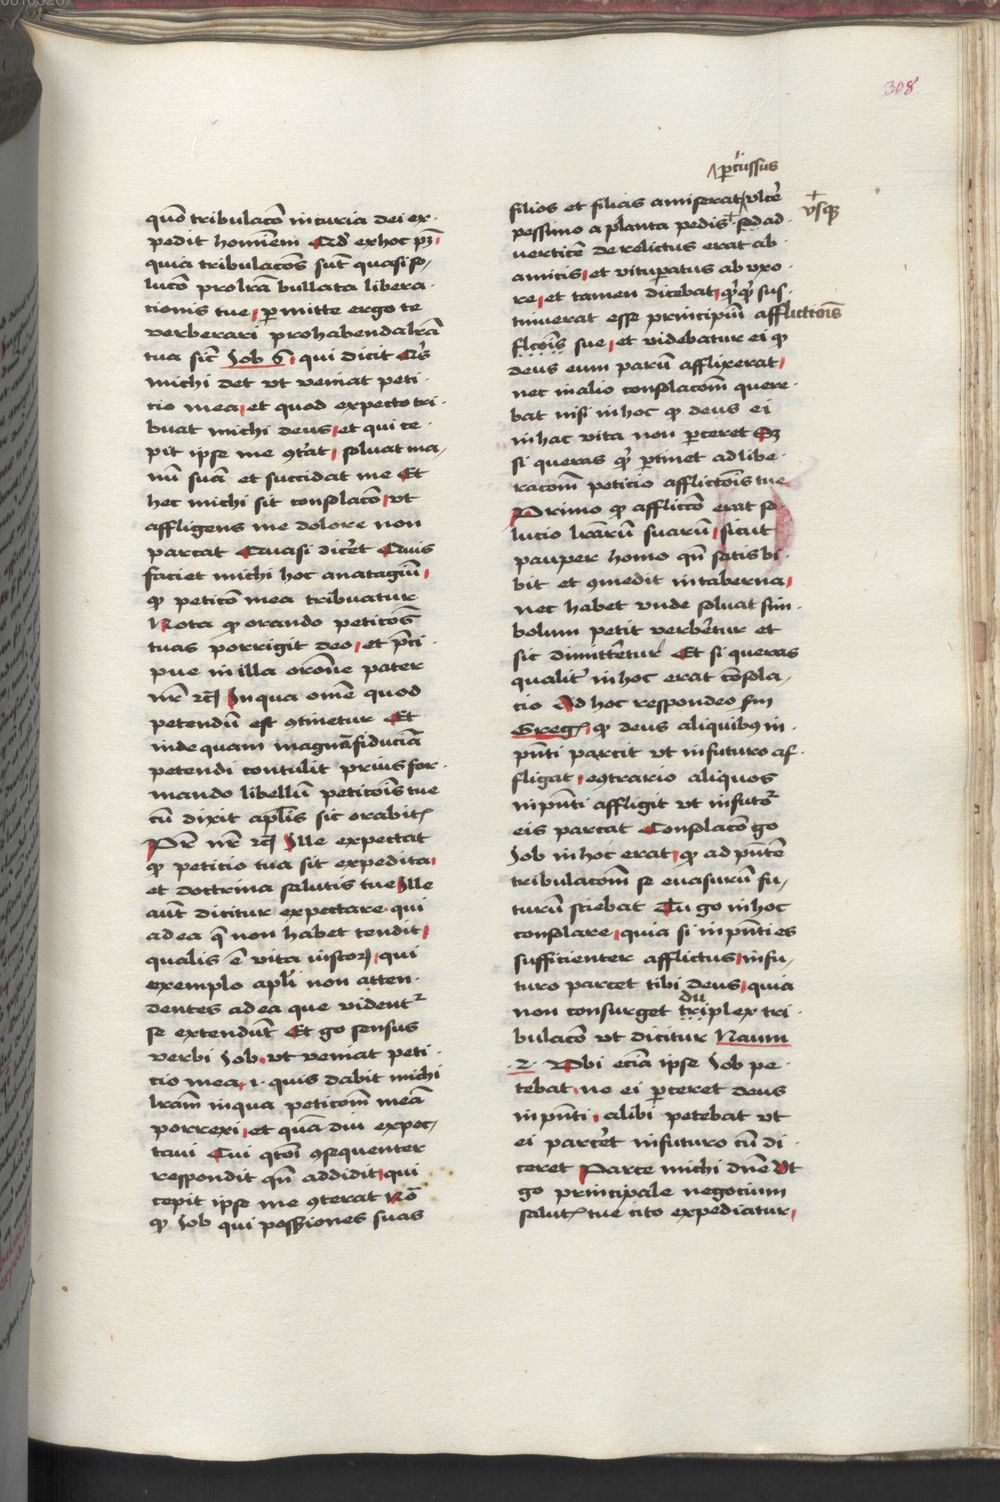 308
quō tribulacōn in curia dei ex-
pedit hominem Ad ex hoc pꝫ
quia tribulacōes sūt quasi so/
lucō pro lrā bullata libera-
cionis tue ꝑmitte ergo te
verberari pro habenda lrā
tua sic̄ Job 6 qui dicit Qͥs
michi det vt veniat peti-
cio mea et quod expecto tri-
buat michi deus et qui ce-
pit ipse me ꝯt̄at soluat ma/
nū suā et succidat me Et
hec michi sit consolacō vt
affligens me dolore non
parcat Quasi dic̄et Quis
faciet michi hoc auatagiū
ꝙ peticō mea tribuatur
Nota ꝙ orando peticōes
tuas porrigit deo et p̄ci-
pue in illa orōne pater
nr̄ rc̄ In qua omē quod
petendū est ꝯtinetur Et
inde quam magnā fiduciā
petendi contulit prius for-
mando libellū peticōis tue
cū dixit aplīs sic orabitꝭ
Pr̄ nr̄ rc̄ Ille expectat
ꝙ peticio tua sit expedita
et doctrina salutis tue Ille
aūt dicitur expectare qui
ad ea q̄ non habet tendit
qualis ē vita iustoꝝ qui
exemplo aplī non atten-
dentes ad ea que vident᷑
se extendūt Et go sensus
verbi Job vt veniat peti-
cio mea .i. quis dabit michi
lrām in qua peticōm meā
porrexi et qua diu expec/
taui Cui qͦtōi ꝯsequenter
respondit qn̄ addidit qui
cepit ipse me ꝯterat Nō
ꝙ Job qui possessiones suas
ꝑcussus
filios et filias amiserat vlcē
pessimo a planta pedis sed ad
vsqꝫ
uerticē derelictus erat ab
amicis et vitupatus ab vxo-
re et tamen dicebat qꝫ qꝫ sus-
tinuerat esse principiū afflictiōis
flcōis sue et videbatur ei ꝙ
deus eum parū afflixerat
nec in alio consolacōm quere-
bat nisi in hoc ꝙ deus ei
in hac vita non ꝑceret Qꝫ
si queras qͥ ꝑtinet ad libe-
racōm peticio afflictōis tue
Primo ꝙ afflictō erat so-
lucio lrārū suarū sicut
pauper homo qn̄ satis bi-
bit et ꝯmedit in taberna
nec habet vnde soluat sim-
bolum petit verb̄etur et
sic dimitt̄etur Et si queras
qualit̄ in hoc erat cōsola/
cio Ad hoc respondeo sm̄
Greg ꝙ deus aliquibꝰ in
pn̄ti parcit vt in futuro af-
fligat eꝯtrario aliquos
in pn̄ti affligit vt in futo᷑
eis parcat Consolacō go
Job in hoc erat ꝙ ad pn̄tē
tribulacōm se euasurū fu/
turū sciebat Tu go in hoc
consolare quia si in pn̄ti es
sufficienter afflictus in fu/
turo parcet tibi deus quia
du
non consurget triplex tri-
bulacō vt dicitur Naum
.2. Vbi eciā ipse Job pe-
tebat ne ei ꝑceret deus
in pn̄ti alibi petebat vt
ei parc̄et in futuro cū di-
ceret Parce michi dn̄e Vt
go principale negocium
salutꝭ tue cito expediatur